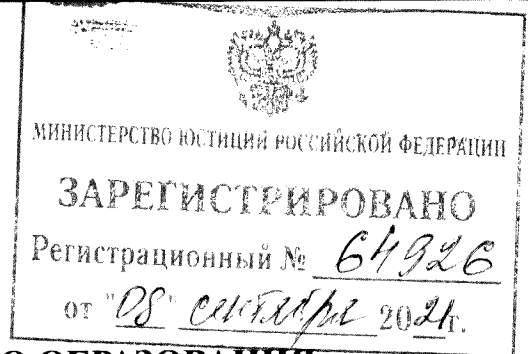 МИНИСТЕРСТВО ЮСТИЦИИ РОССИЙСКОЙ ФЕДЕРАЦИИ
ЗАРЕГИСТРИРОВАНО
Регистрационный № 64926
от "08" сентября 2021г.